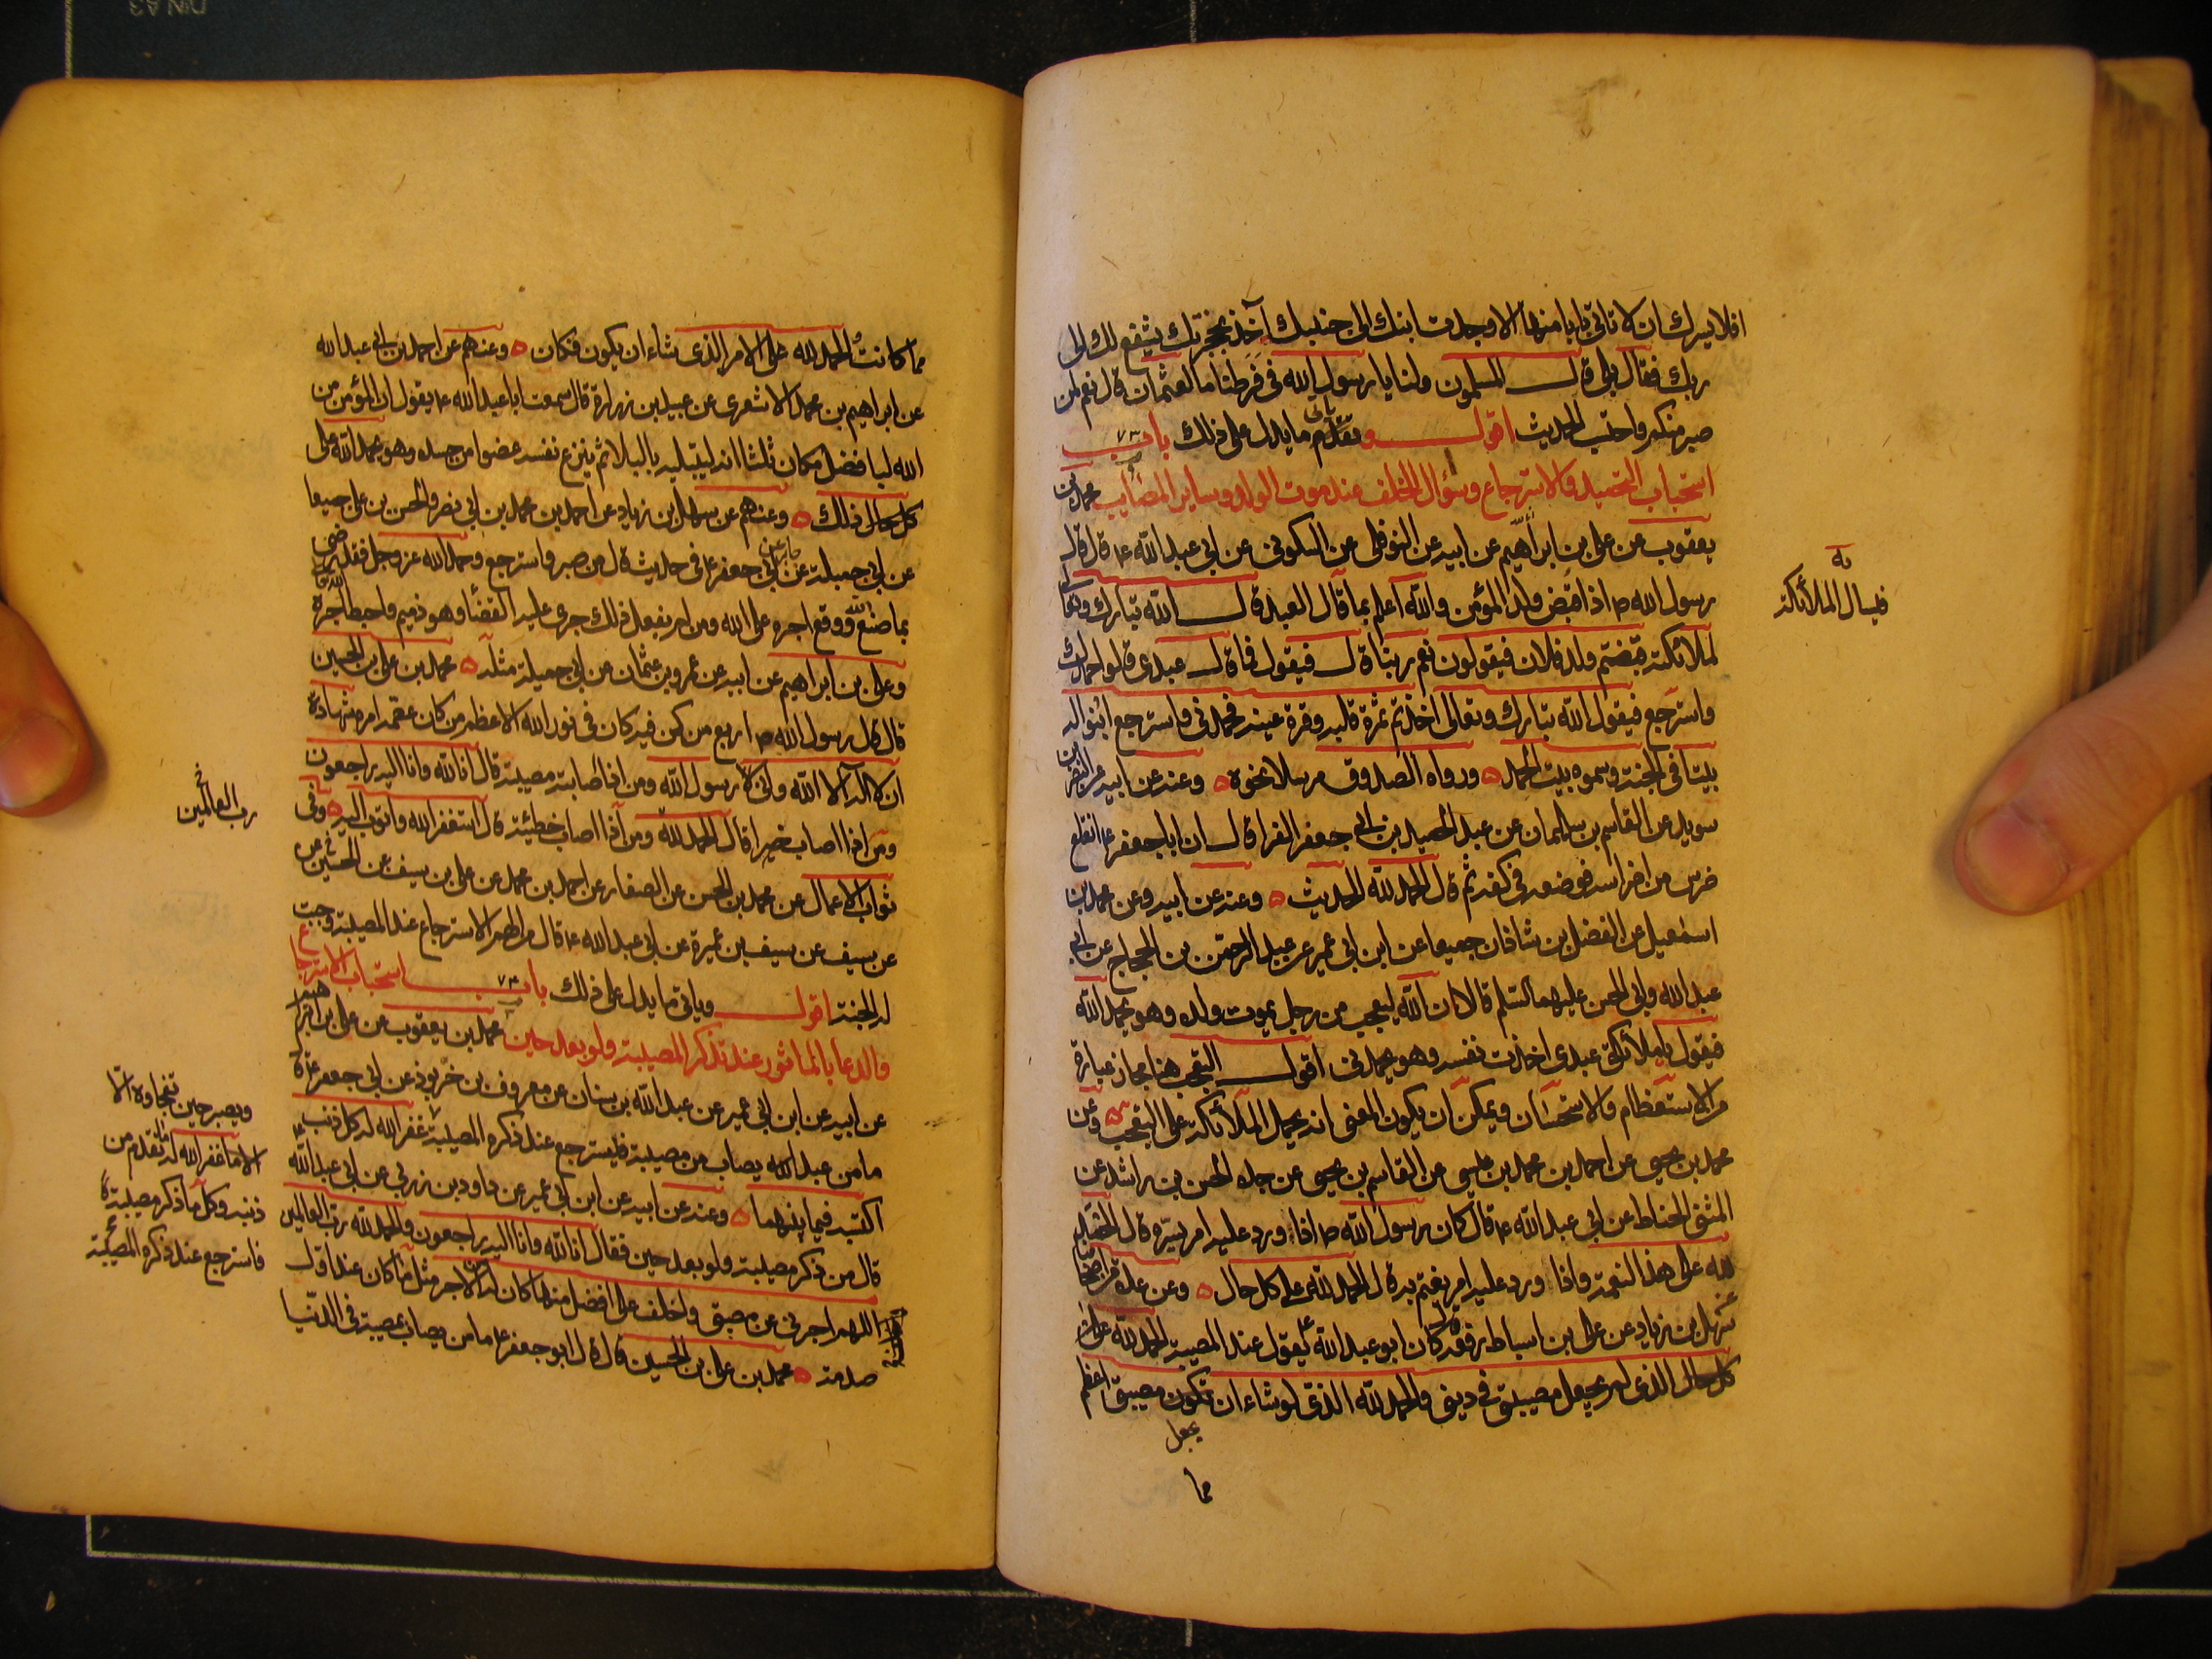 افلا يسرك ان لا تاتي بابا منها الا وجدت ابنك الى جنبك آخذ بحجزتك يشفع لك الى
ربك فقال بلى قال المسلمون ولنا يا رسول الله في فرطنا ما لعثمان قال نعم لمن
صبر منكم واحتسب الحديث اقول وتقدم ما يدل على ذلك باب ٧٣
ياتى
استحباب التحميد والاسترجاع وسؤال الخلف عند موت الولد وساير المصايب محمد بن
يعقوب عن علي بن ابراهيم عن ابيه عن النوفلي عن السكوني عن ابي عبد الله ع قال قال
رسول الله ص اذا قبض ولد المؤمن والله اعلم بما قال العبد قال الله تبارك وتعالى
لملائكته قبضتم ولد فلان فيقولون نعم ربنا قال فيقول فما قال عبدي قالوا حمدك
واسترجع فيقول الله تبارك وتعالى اخذتم ثمرة قلبه وقرة عينه فحمدني واسترجع ابنوا له
بيتا في الجنة وسموه بيت الحمد ورواه الصدوق مرسلا نحوه وعنه عن ابيه عن النضر بن
سويد عن القاسم بن سليمان عن عبد الحميد بن ابي جعفر الفرا قال ان ابا جعفر ع انقلع
ضرس من اضراسه فوضعه في كفه ثم قال الحمد لله الحديث وعنه عن ابيه وعن محمد بن
اسمعيل عن الفضل بن شاذان جميعا عن ابن ابي عمير عن عبد الرحمن بن الحجاج عن ابي
عبد الله وابي الحسن عليهما السلم قالا ان الله ليعجب من رجل يموت ولده وهو يحمد الله
فيقول يا ملائكتي عبدي اخذت نفسه وهو يحمدني اقول التعجب هنا مجاز عبارة
من الاستعظام والاستحسان ويمكن ان يكون المعنى انه يحمل الملائكة على التعجب وعن
محمد بن يحيى عن احمد بن محمد بن عيسى عن القاسم بن يحيى عن جده الحسن بن راشد عن
المثنى الحناط عن ابي عبد الله ع قال كان رسول الله ص اذا ورد عليه امر يسره قال الحمد
لله على هذه النعمة واذا ورد عليه امر يغتم به قال الحمد لله على كل حال وعن عدة من اصحابنا عن
سهل بن زياد عن علي بن اسباط رفعه قال كان ابو عبد الله ع يقول عند المصيبة الحمد لله على
كل حال الذي لم يجعل مصيبتي في ديني والحمد لله الذي لو شاء ان تكون مصيبتي اعظم
يجعل
مما
فيسال الملائكة
مما كانت والحمد لله على الامر الذي شاء ان يكون فكان وعنهم عن احمد بن ابي عبد الله
عن ابراهيم بن محمد الاشعري عن عبيد بن زرارة قال سمعت ابا عبد الله ع يقول ان المؤمن من
الله لبا فضل مكان ثلثا انه ليبتليه بالبلا ثم ينزع نفسه عضوا من جسده وهو يحمد الله على
كل حال ذلك وعنهم عن سهل بن زياد عن احمد بن محمد بن ابي نصر والحسن بن علي جميعا
عن ابي جميلة عن جابر عن ابي جعفر ع في حديث قال من صبر واسترجع وحمد الله عز وجل فقد رضى
بما صنع الله ووقع اجره على الله ومن لم يفعل ذلك جرى عليه القضا وهو ذميم واحبط الله اجره
وعلي بن ابراهيم عن ابيه عن عمرو بن عثمان عن ابي جميلة مثله محمد بن علي بن الحسين
قال قال رسول الله ص اربع من كن فيه كان في نور الله الاعظم من كان عصمة امره شهادة
ان لا اله الا الله واني رسول الله ومن اذا اصابته مصيبة قال انا لله وانا اليه راجعون
ومن اذا اصاب خيرا قال الحمد لله ومن اذا اصاب خطيئة قال استغفر الله واتوب اليه وفى
ثواب الاعمال عن محمد بن الحسن عن الصفار عن احمد بن محمد عن علي بن سيف عن الحسين عن
عن سيف عن سيف بن عميرة عن ابي عبد الله ع قال من الهم الاسترجاع عند المصيبة وجبت
له الجنة اقول وياتي ما يدل على ذلك باب ٧٣ استحباب الاسترجاع
والدعا بالماثور عند تذكر المصيبة ولو بعد حين محمد بن يعقوب عن علي بن ابراهيم
عن ابيه عن ابن ابي عمير عن عبد الله بن سنان عن معروف بن خربوذ عن ابي جعفر ع قال
ما من عبد الله يصاب من مصيبة فليسترجع عند ذكره المصيبة غفر الله له كل ذنب
اكتسبه فيما بينهما وعنه عن ابيه عن ابن ابي عمير عن داود بن زربي عن ابي عبد الله ع
قال من ذكر مصيبة ولو بعد حين فقال انا لله وانا اليه راجعون والحمد لله رب العالمين
اللهم اجرني عن مصيبتي واخلف علي افضل منها كان له من الاجر مثل ما كان عند اول
صدمة محمد بن علي بن الحسين قال قال ابو جعفر ع ما من يصاب بمصيبة في الدنيا
رب العالمين
ويصبر حين تفجاوه الا
الا ما غفر الله له ما تقدم من
ذنبه وكل ما ذكر مصيبة
فاسترجع عند ذكره المصيبة